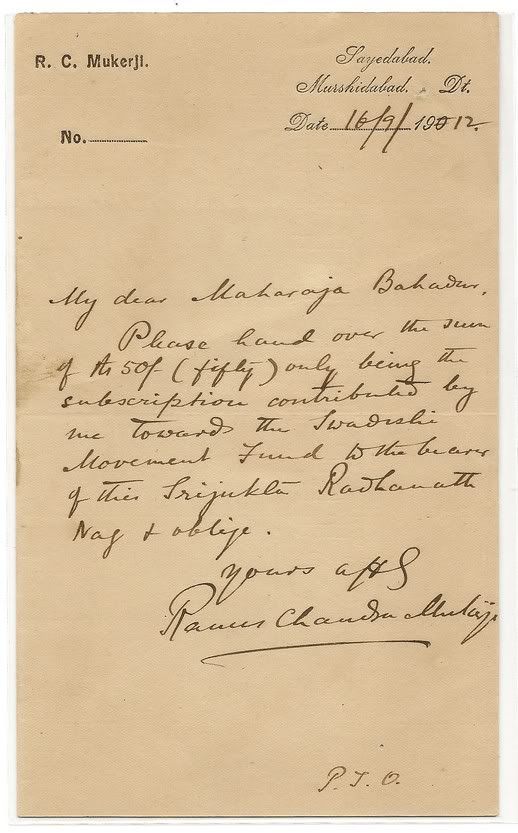 R. C. Mukerji.
Sayedabad.
Murshidabad. Dt.
Date 16/9/ 19012.
No.
My dear Maharaja Bahadur,
Please hand over the sum
of Rs 50/- (fifty) only being the
subscription contributed by
me towards the Swadeshi
Movement Fund to the bearer
of this Srijukta Radhanath
Nag & oblige.
Yours affly
Chandra Mukerji
P.T.O.